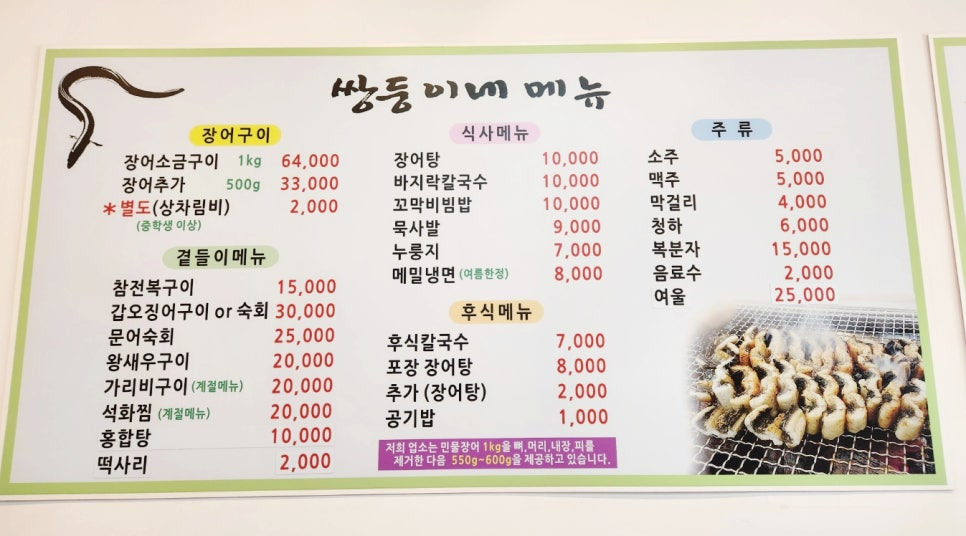 쌍둥이네 메뉴
장어구이
장어소금구이 1kg 64,000
장어추가 500g 33,000
*별도(상차림비) 2,000
(중학생 이상)
곁들이메뉴
참전복구이 15,000
갑오징어구이 or 숙회 30,000
문어숙회 25,000
왕새우구이 20,000
가리비구이 (계절메뉴) 20,000
석화찜 (계절메뉴) 20,000
홍합탕 10,000
떡사리 2,000
식사메뉴
장어탕 10,000
바지락칼국수 10,000
꼬막비빔밥 10,000
묵사발 9,000
누룽지 7,000
메밀냉면 (여름한정) 8,000
후식메뉴
후식칼국수 7,000
포장 장어탕 8,000
추가 (장어탕) 2,000
공기밥 1,000
저희 업소는 민물장어 1kg을 뼈,머리,내장,피를
제거한 다음 550g~600g을 제공하고 있습니다.
주 류
소주 5,000
맥주 5,000
막걸리 4,000
청하 6,000
복분자 15,000
음료수 2,000
여울 25,000